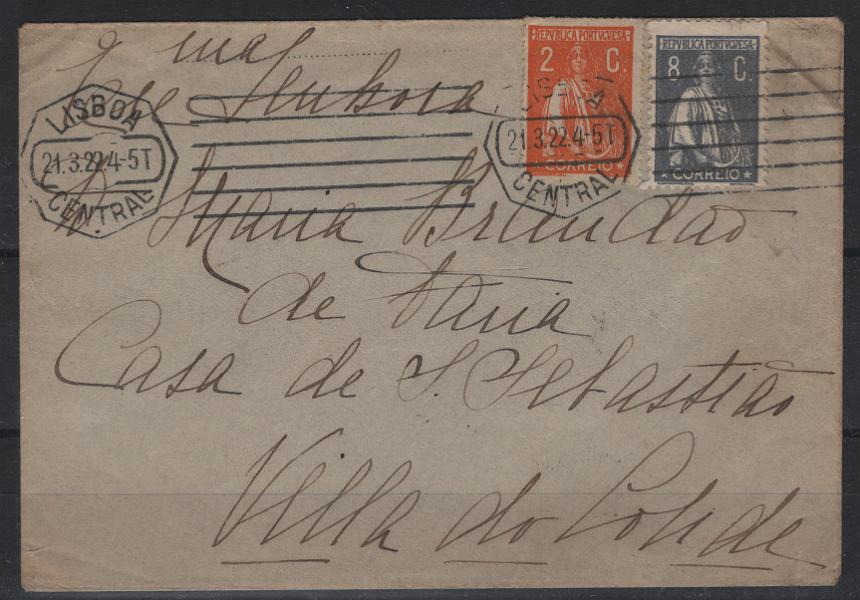 Exma
Senhora
D. Maria Brandão
de Faria
Casa de S. Sebastião
Villa do Conde
LISBOA
21.3.22.4-5T
CENTRAL
LISBOA
21.3.22.4-5T
CENTRAL
REPVBLICA PORTVGVESA
2 C.
CORREIO
REPVBLICA PORTVGVESA
8 C.
CORREIO